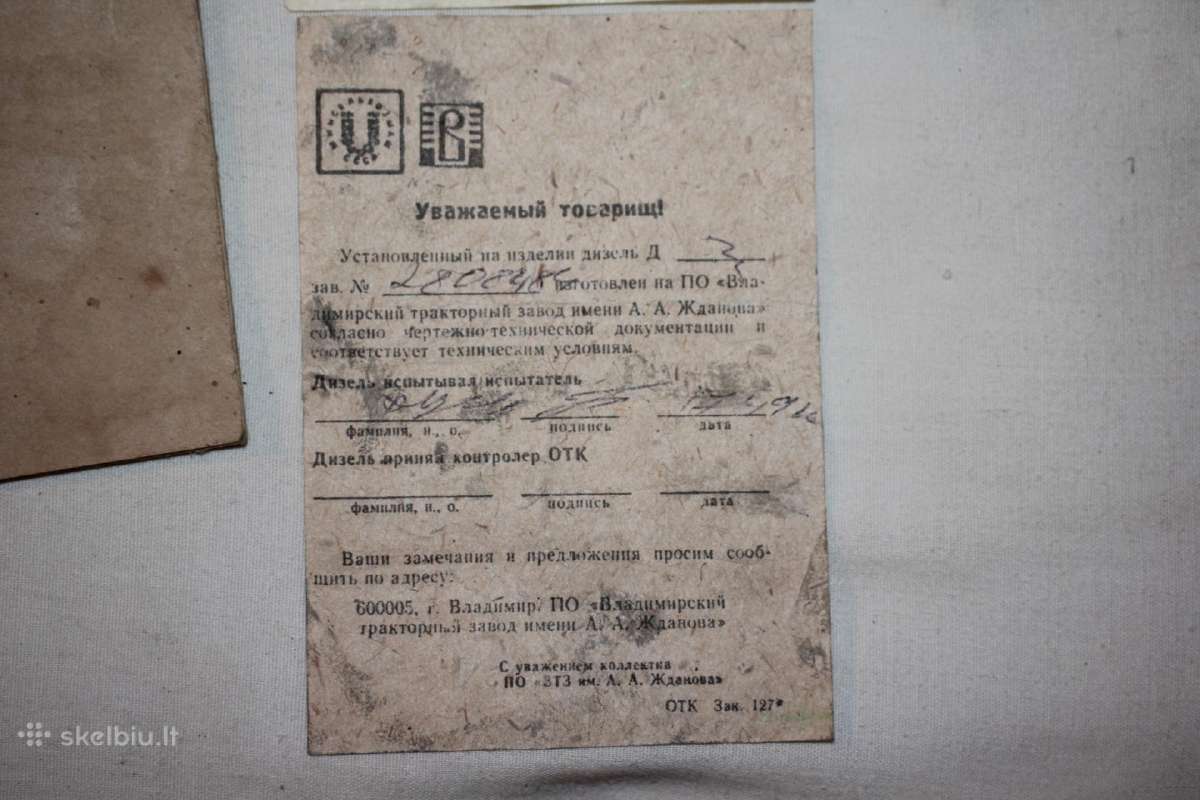 МИНСЕЛЬХОЗМАШ
СССР
В
Уважаемый товарищ!
Установленный на изделии дизель Д
зав. № изготовлен на ПО «Вла-
димирский тракторный завод имени А. А. Жданова»
согласно чертежно-технической документации и
соответствует техническим условиям.
Дизель испытывал испытатель
фамилия, и., о. подпись дата
Дизель принял контролер ОТК
фамилия, и., о. подпись дата
Ваши замечания и предложения просим сооб-
щить по адресу:
600005, г. Владимир, ПО «Владимирский
тракторный завод имени А. А. Жданова»
С уважением коллектив
ПО «ВТЗ им. А. А. Жданова»
ОТК Зак. 127
skelbiu.lt